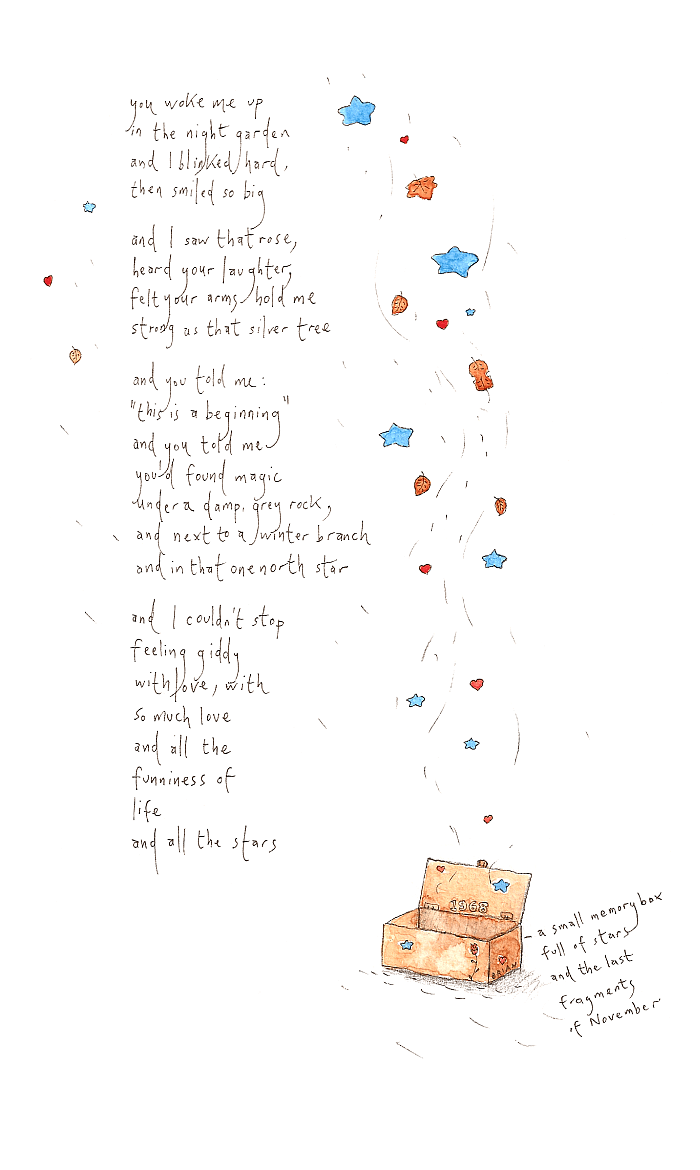 you woke me up
in the night garden
and I blinked hard,
then smiled so big
and I saw that rose,
heard your laughter,
felt your arms hold me
strong as that silver tree
and you told me:
"this is a beginning"
and you told me
you'd found magic
under a damp, grey rock,
and next to a winter branch
and in that one north star
and I couldn't stop
feeling giddy
with love, with
so much love
and all the
funniness of
life
and all the stars
1968
BRIAN
- a small memory box
full of stars
and the last
fragments
of November